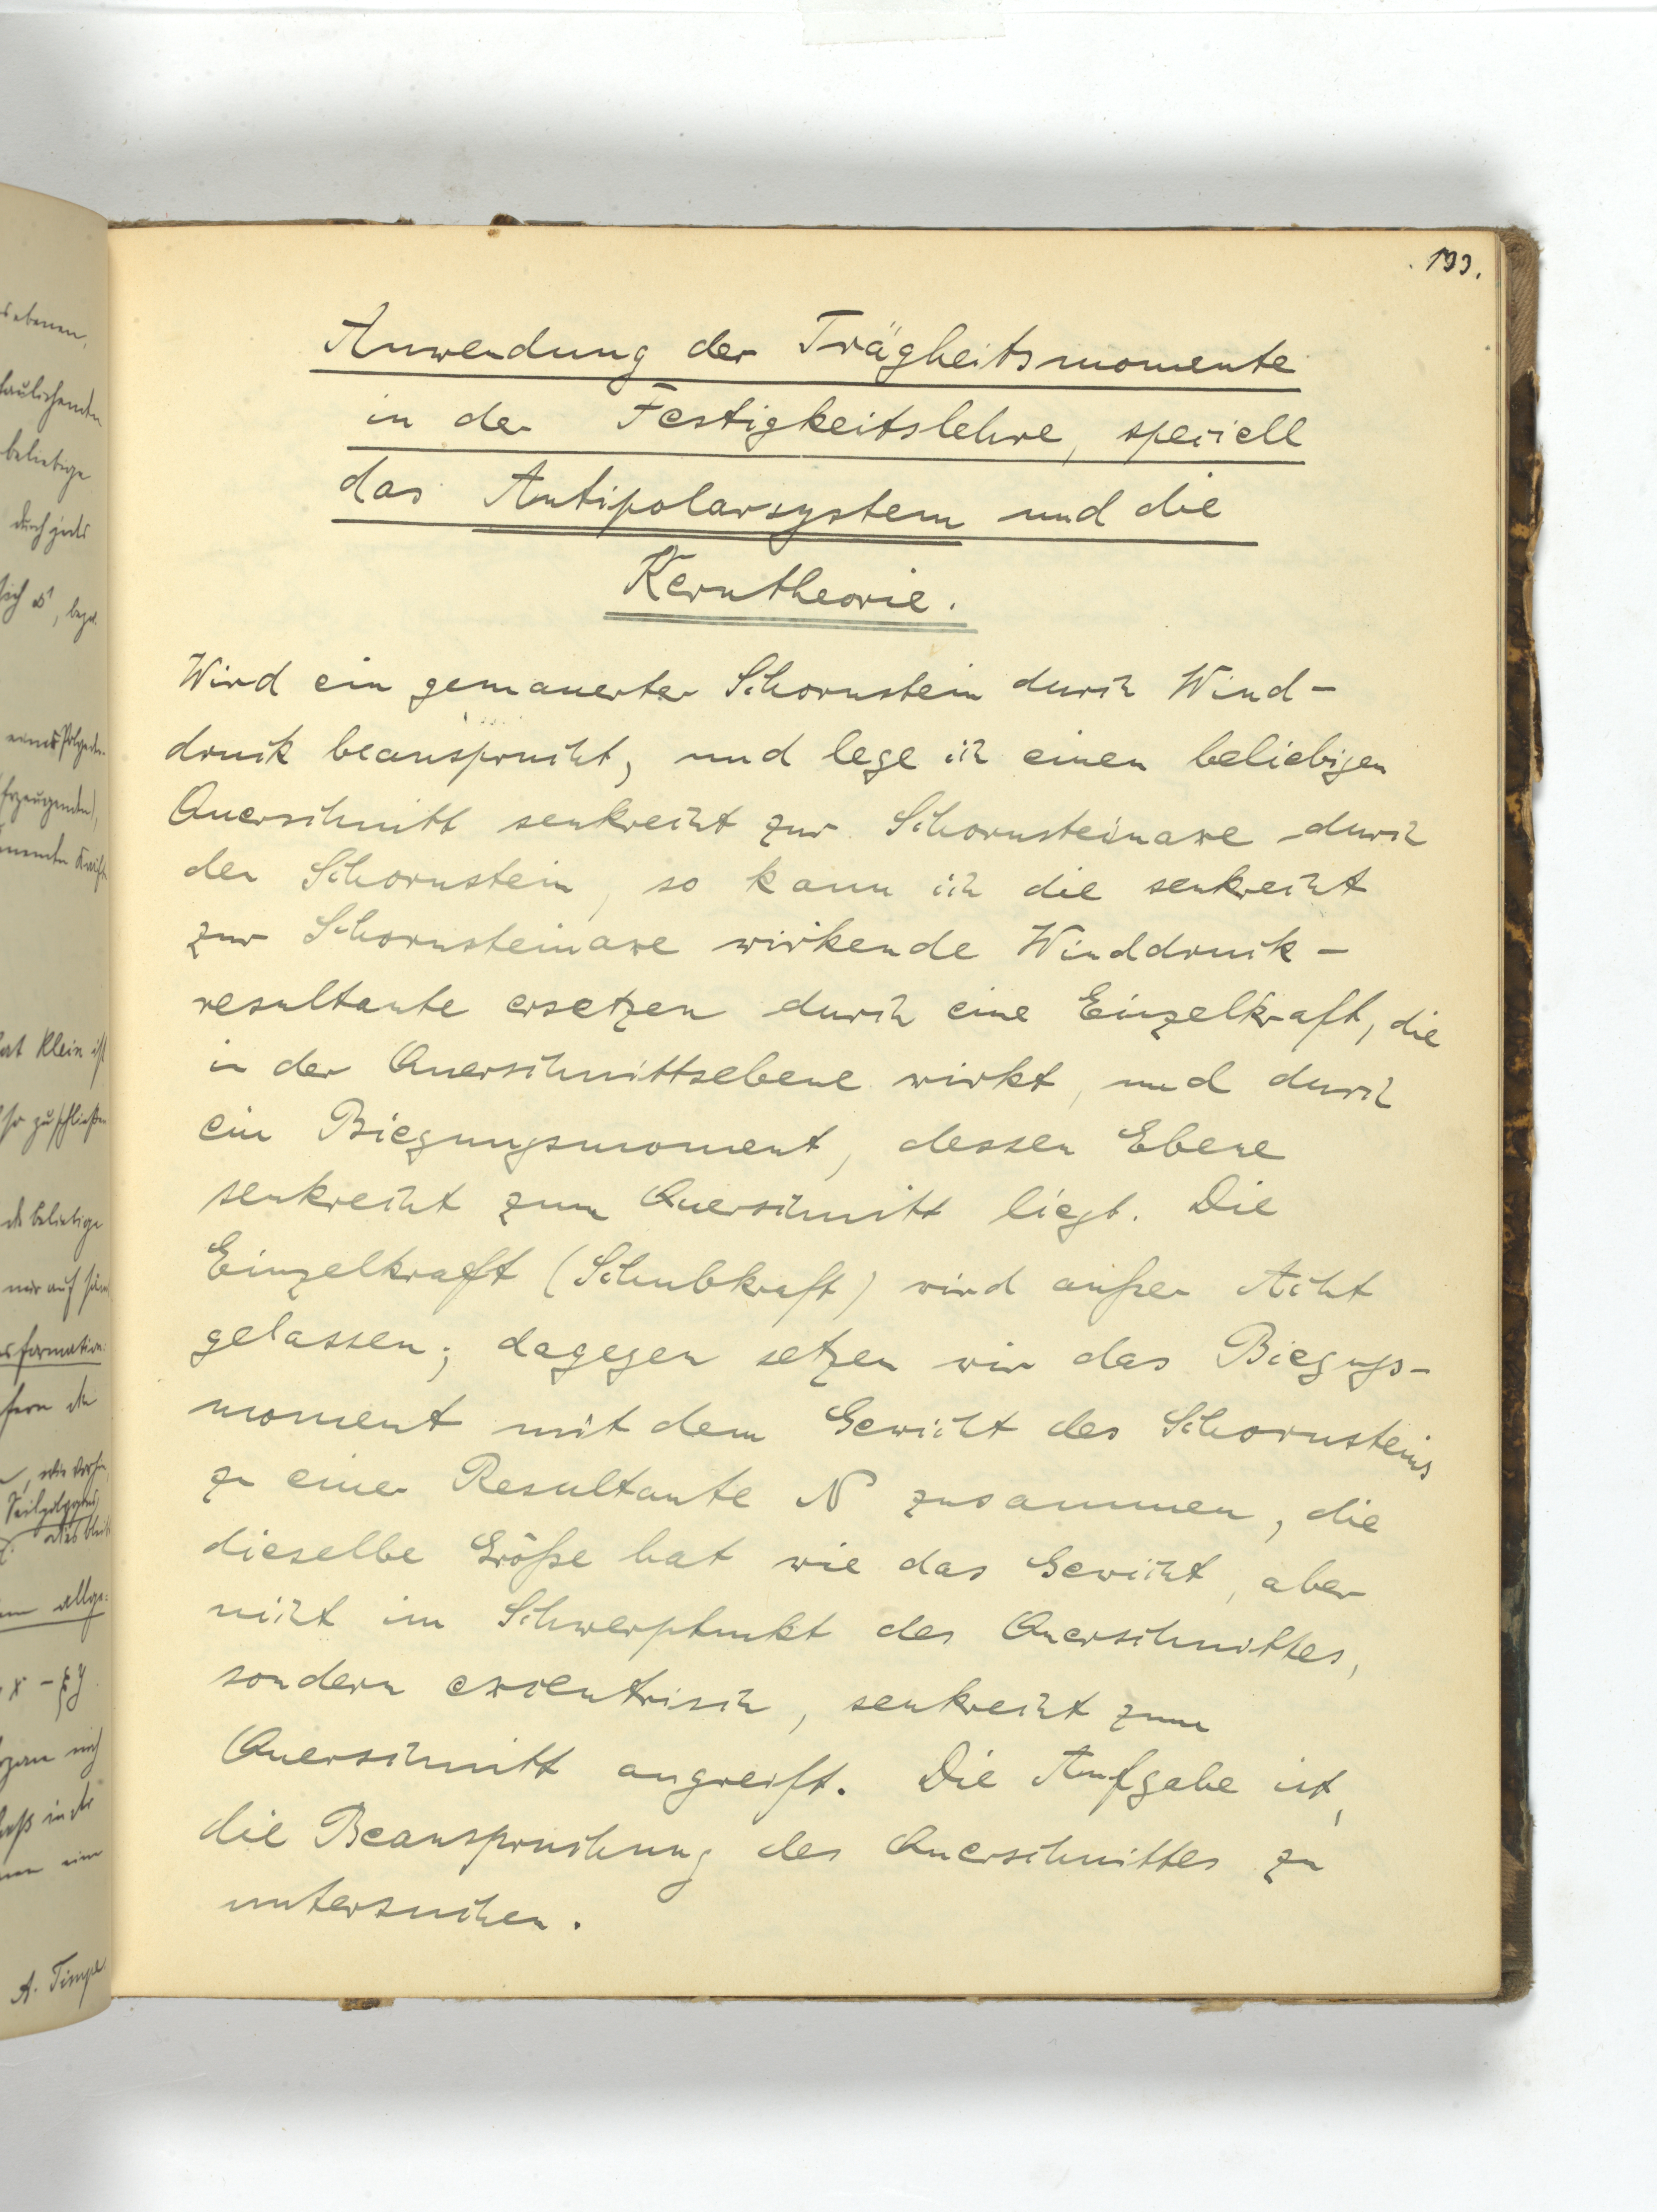 193.
Anwendung der Trägheitsmomente
in der Festigkeitslehre, speciell
das Antipolarsystem und die
Kerntheorie.
Wird ein gemauerter Schornstein durch Wind-
druck beansprucht, und lege ich einen beliebigen
Querschnitt senkrecht zur Schornsteinaxe durch
den Schornstein, so kann ich die senkrecht
zur Schornsteinaxe wirkende Winddruck-
resultante ersetzen durch eine Einzelkraft, die
in der Querschnittsebene wirkt, und durch
ein Biegungsmoment, dessen Ebene
senkrecht zum Querschnitt liegt. Die
Einzelkraft (Schubkraft) wird außer Acht
gelassen; dagegen setzen wir das Biegungs-
moment mit dem Gewicht des Schornsteins
zu einer Resultante N zusammen, die
dieselbe Größe hat wie das Gewicht, aber
nicht im Schwerpunkt des Querschnittes,
sondern excentrisch, senkrecht zum
Querschnitt angreift. Die Aufgabe ist,
die Beanspruchung des Querschnittes zu
untersuchen.
beliebige
durch jede
hat Klein ist
so zu schließen
die beliebige
nur auf
wie vorhin
A. Timpe.